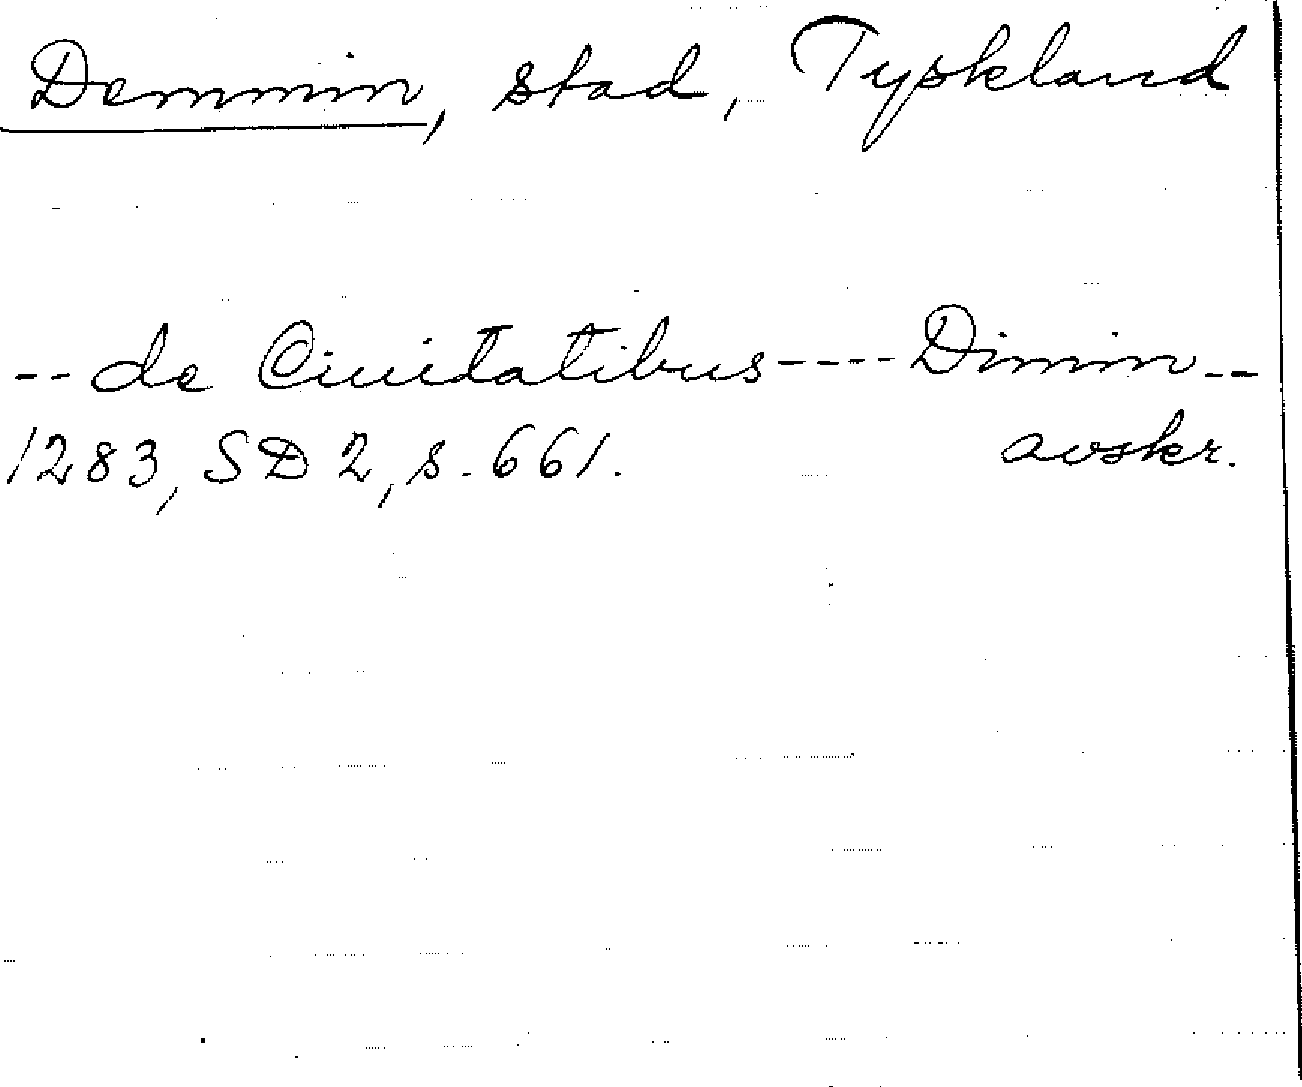 Demmin, stad, Tyskland
-- de Ciuitatibus ---- Dimin --
1283, SD 2, s. 661. avskr.